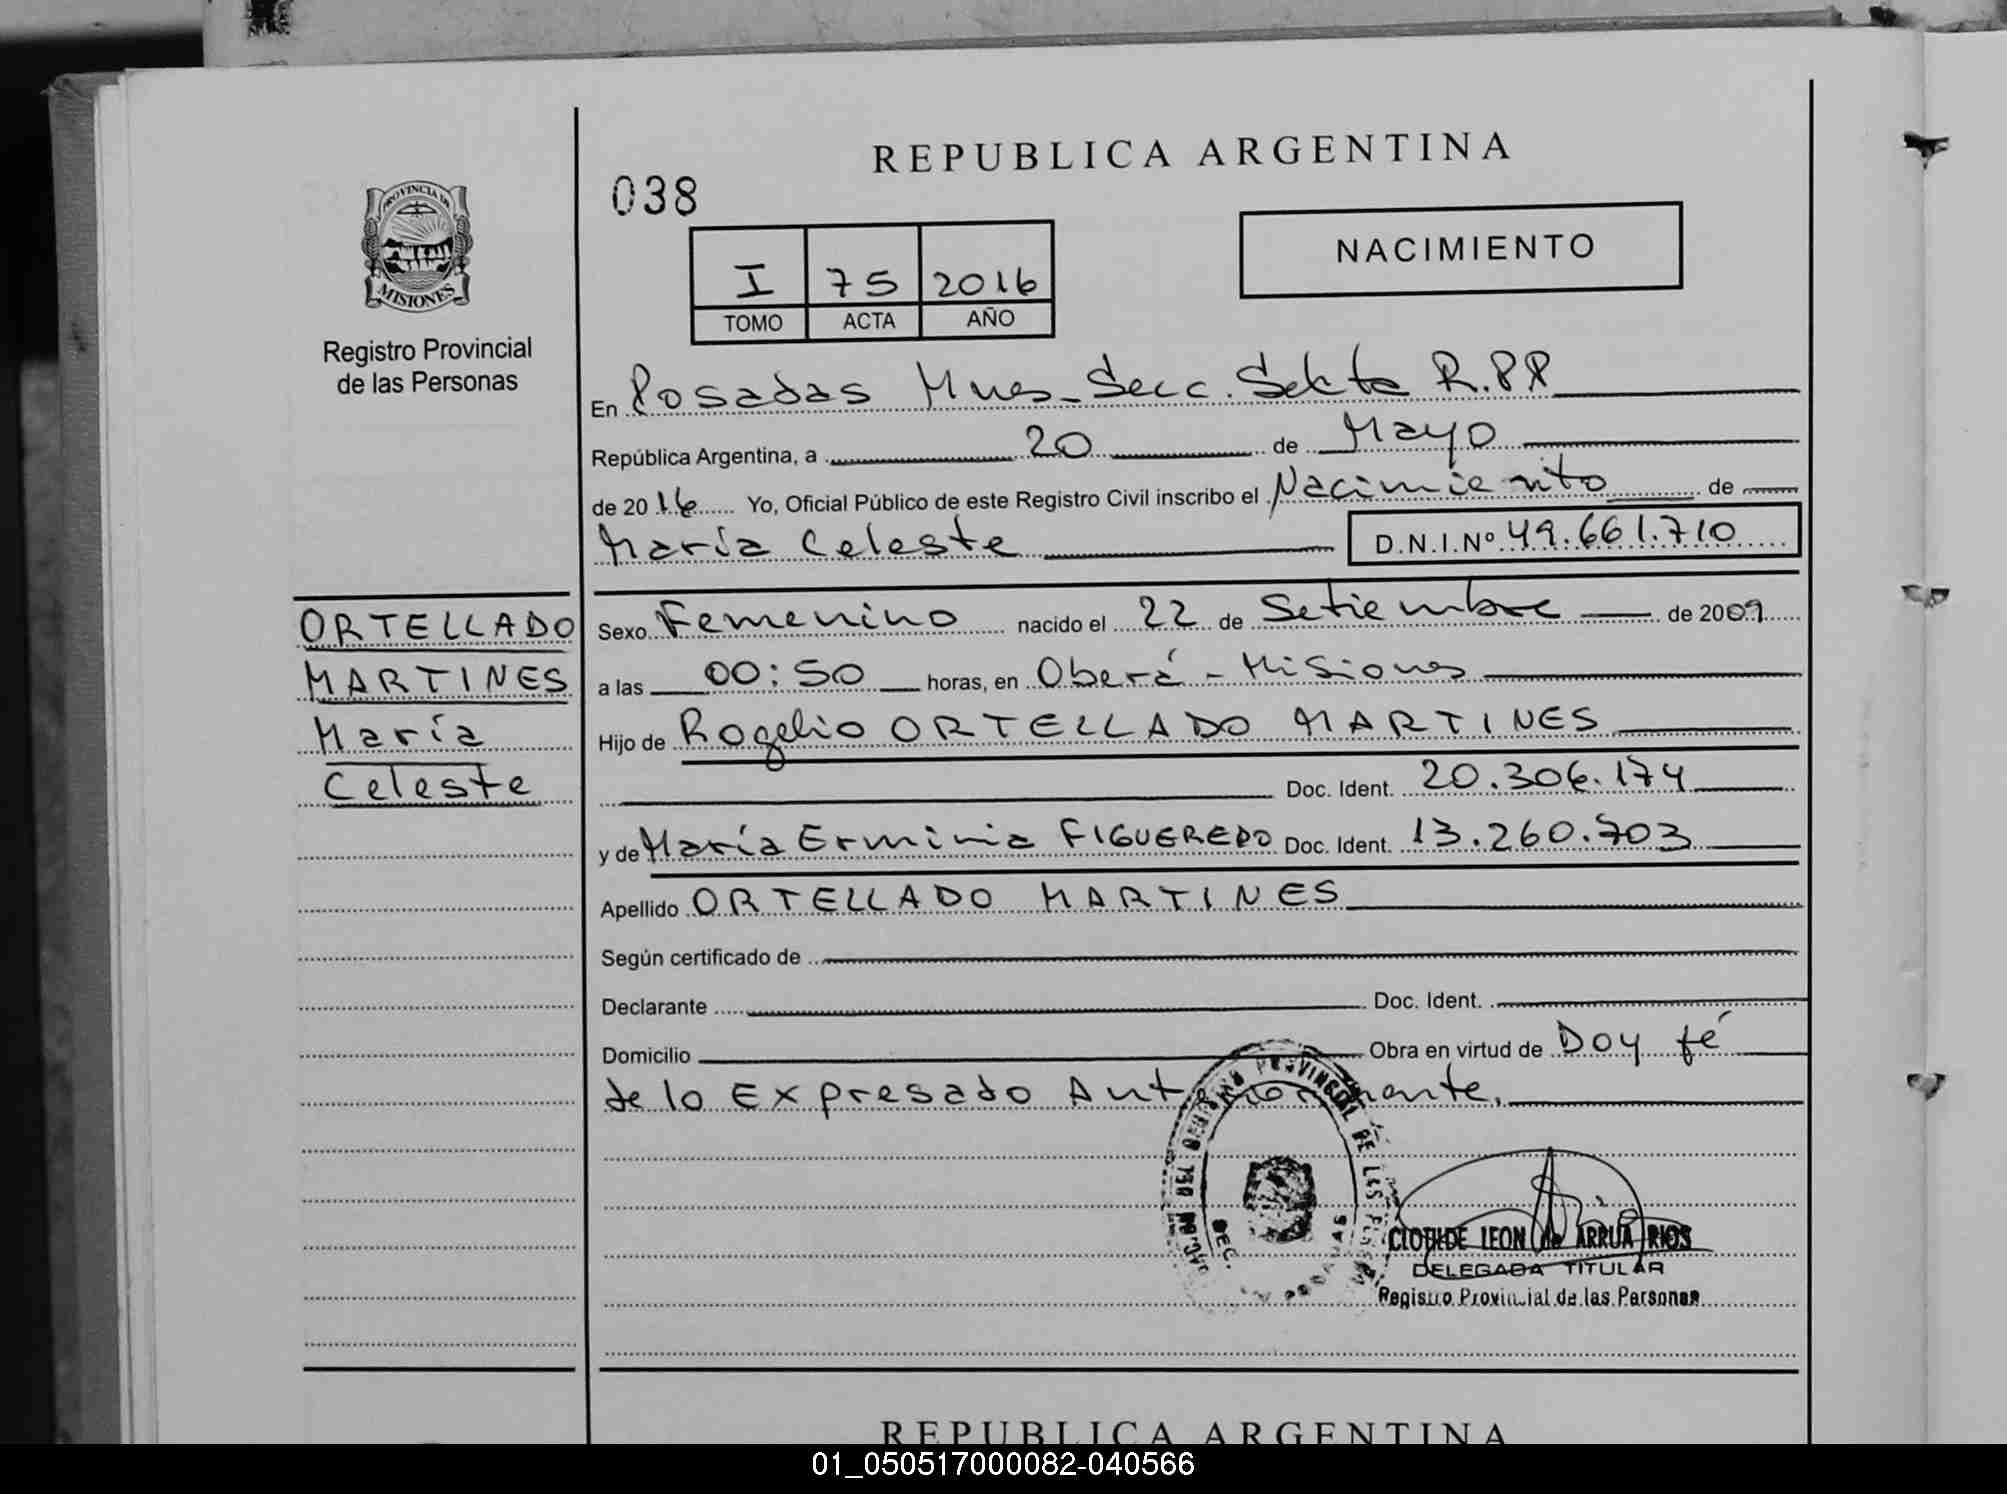 PROVINCIA DE
MISIONES
Registro Provincial
de las Personas
ORTELLADO
MARTINES
María
Celeste
REPUBLICA ARGENTINA
038
NACIMIENTO
I 75 2016
TOMO ACTA AÑO
En Posadas Mnes - Secc. Sekta R.PP
República Argentina, a 20 de Mayo
de 2016 Yo, Oficial Público de este Registro Civil inscribo el Nacimiento de
María Celeste D.N.I.Nº 49.661.710
Sexo Femenino nacido el 22 de Setiembre de 2009
a las 00:50 horas, en Oberá - Misiones
Hijo de Rogelio ORTELLADO MARTINES
Doc. Ident. 20.306.174
y de María Erminia FIGUEREDO Doc. Ident. 13.260.703
Apellido ORTELLADO MARTINES
Según certificado de
Declarante Doc. Ident.
Domicilio Obra en virtud de Doy fé
de lo Expresado Anteriormente.
PROVINCIAL DE LAS
CLOTILDE LEON de ARRUA RIOS
DELEGADA TITULAR
Registro Provincial de las Personas
REPUBLICA ARGENTINA
01_050517000082-040566